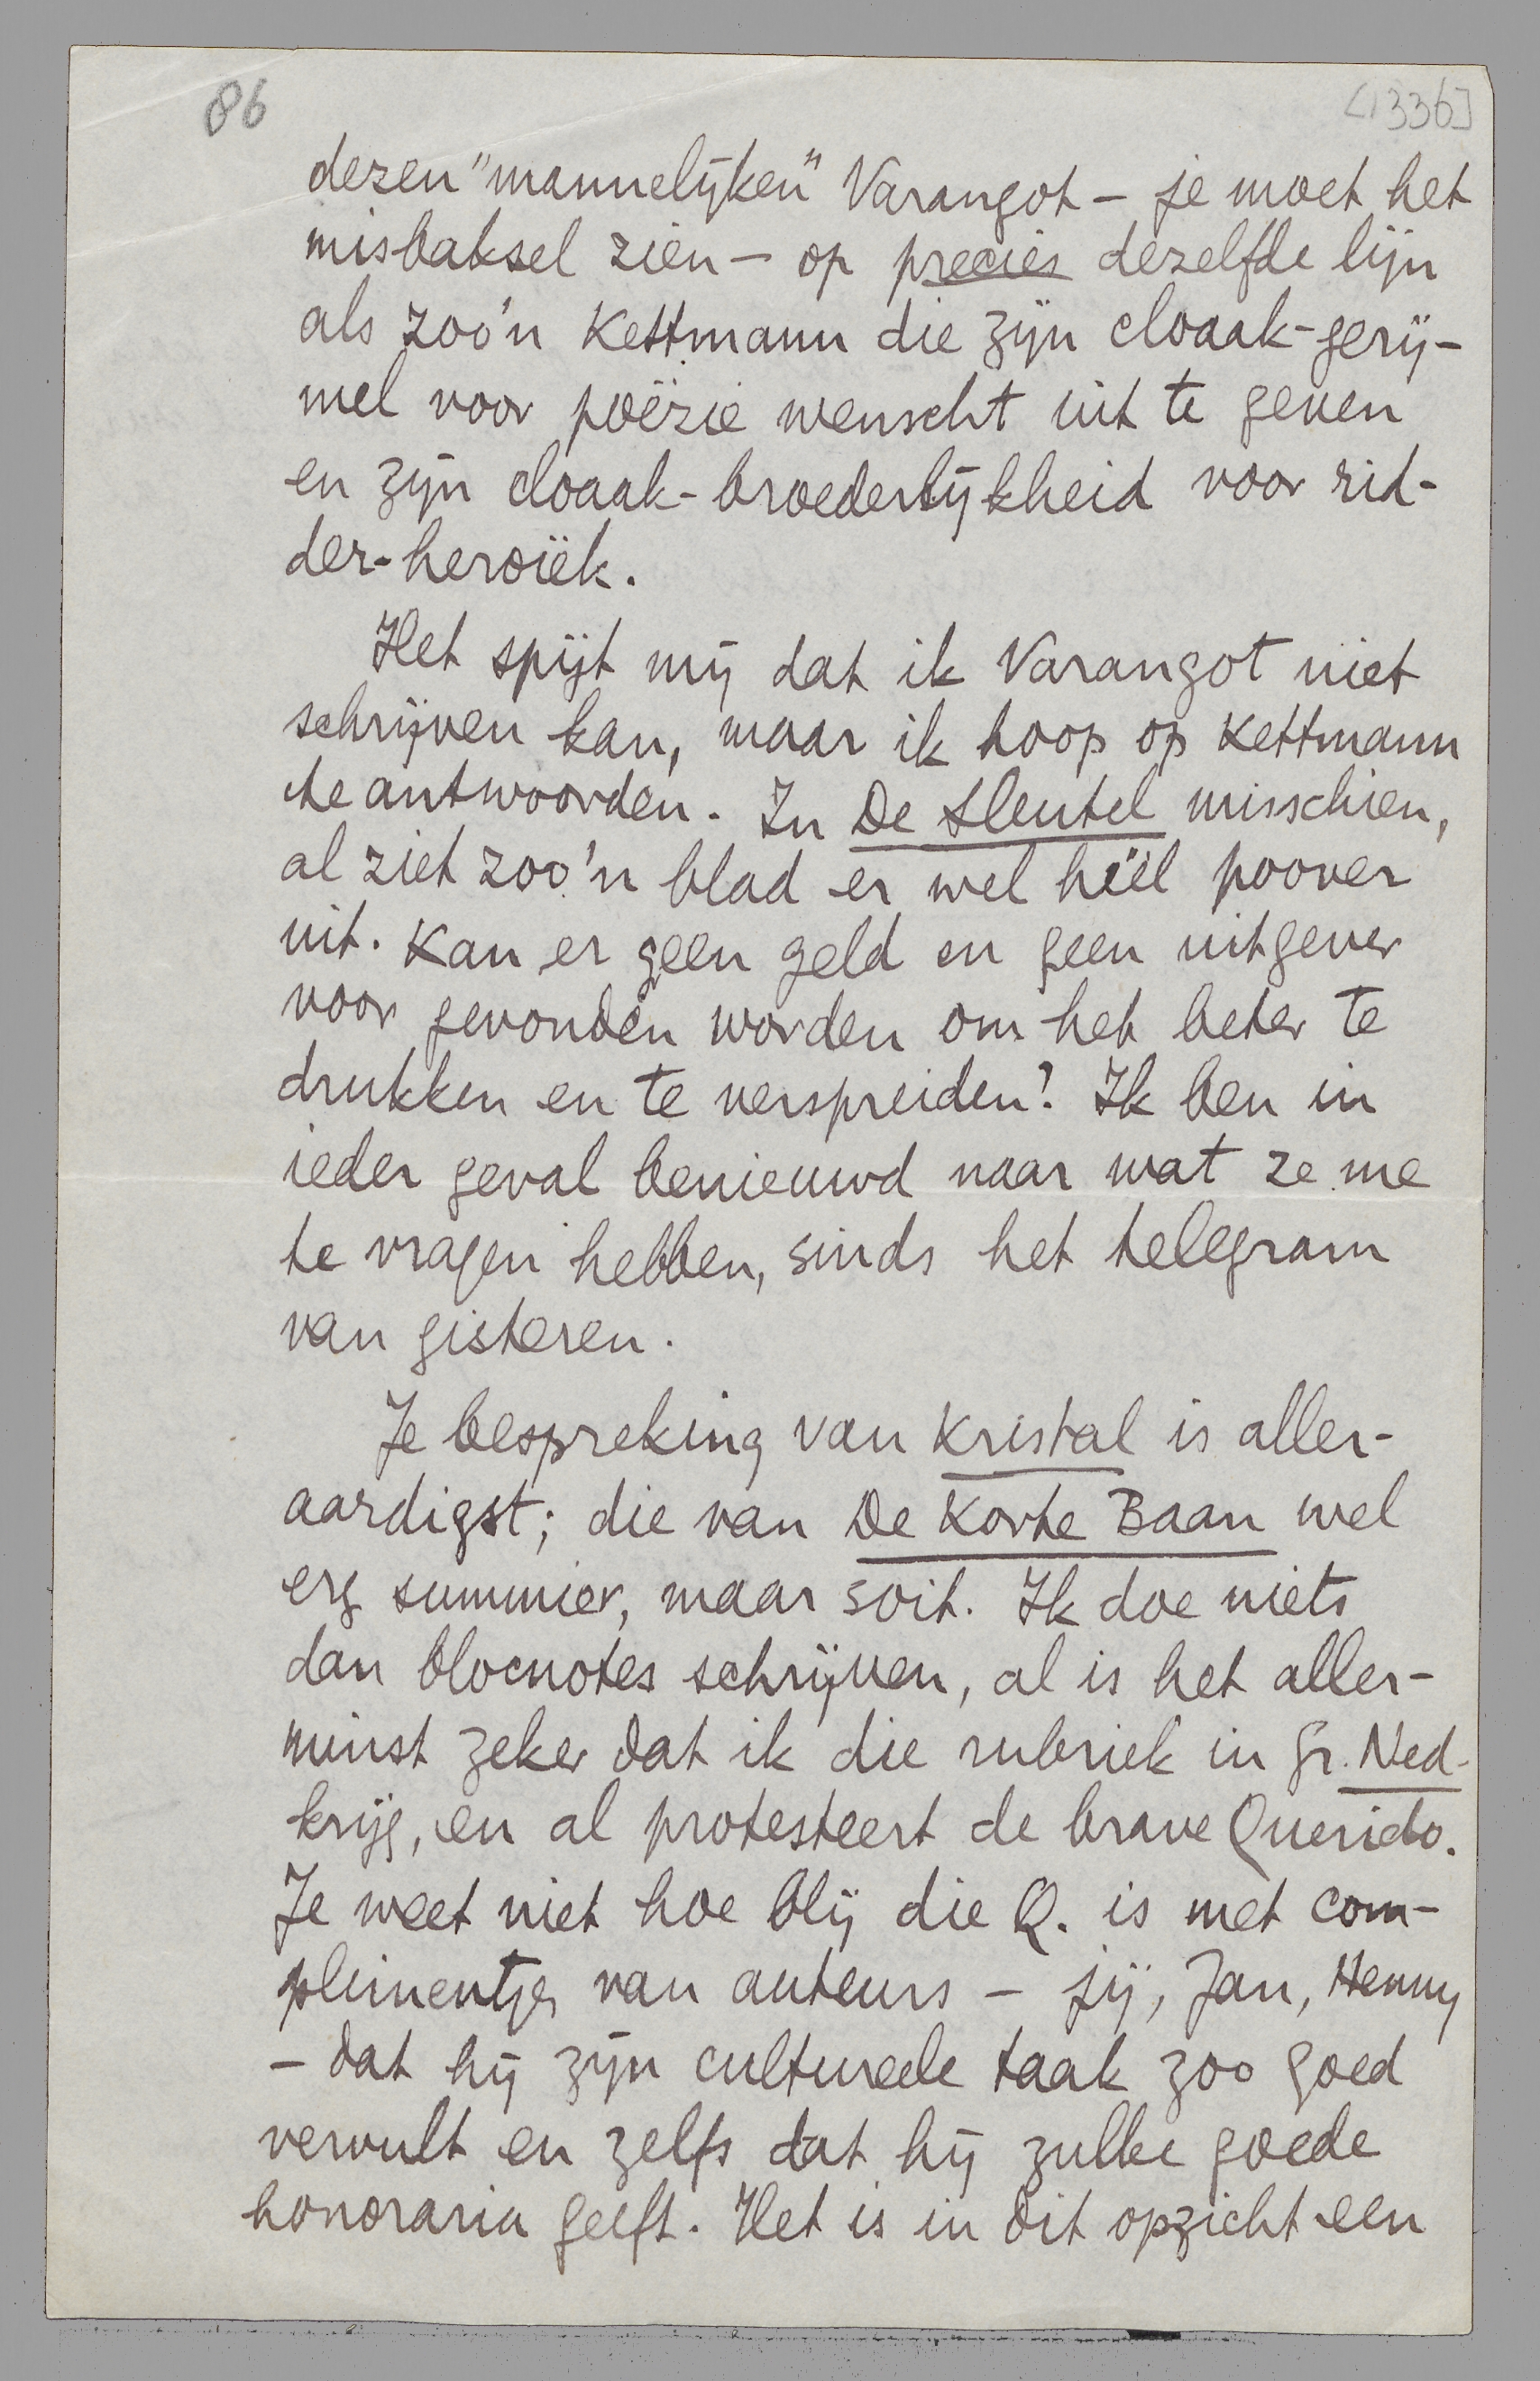 86
[1336]
dezen "mannelijken" Varangot – je moet het
misbaksel zien – op precies dezelfde lijn
als zoo'n Kettmann die zijn cloaak-gerij-
mel voor poëzie wenscht uit te geven
en zijn cloaak-broederlijkheid voor rid-
der-heroïek.
Het spijt mij dat ik Varangot niet
schrijven kan, maar ik hoop op Kettmann
te antwoorden. In De Sleutel misschien,
al ziet zoo'n blad er wel héél poover
uit. Kan er geen geld en geen uitgever
voor gevonden worden om het beter te
drukken en te verspreiden? Ik ben in
ieder geval benieuwd naar wat ze me
te vragen hebben, sinds het telegram
van gisteren.
Je bespreking van Kristal is aller-
aardigst; die van De Korte Baan wel
erg summier, maar soit. Ik doe niets
dan blocnotes schrijven, al is het aller-
minst zeker dat ik die rubriek in Gr. Ned.
krijg, en al protesteert de brave Querido.
Je weet niet hoe blij die Q. is met com-
plimentjes van auteurs – jij, Jan, Henny
– dat hij zijn cultureele taak zoo goed
vervult en zelfs dat hij zulke goede
honoraria geeft. Het is in dit opzicht een